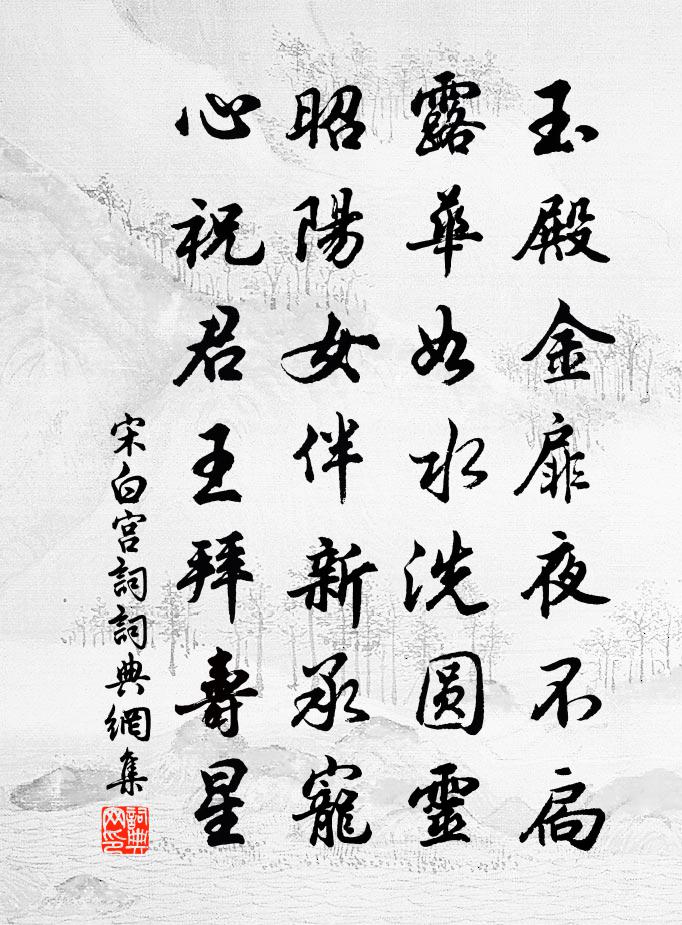 玉殿金扉夜不扃
露華如水洗圓靈
昭陽女伴新承寵
心祝君王拜壽星
宋白宮詞詞典網集
詞典网印